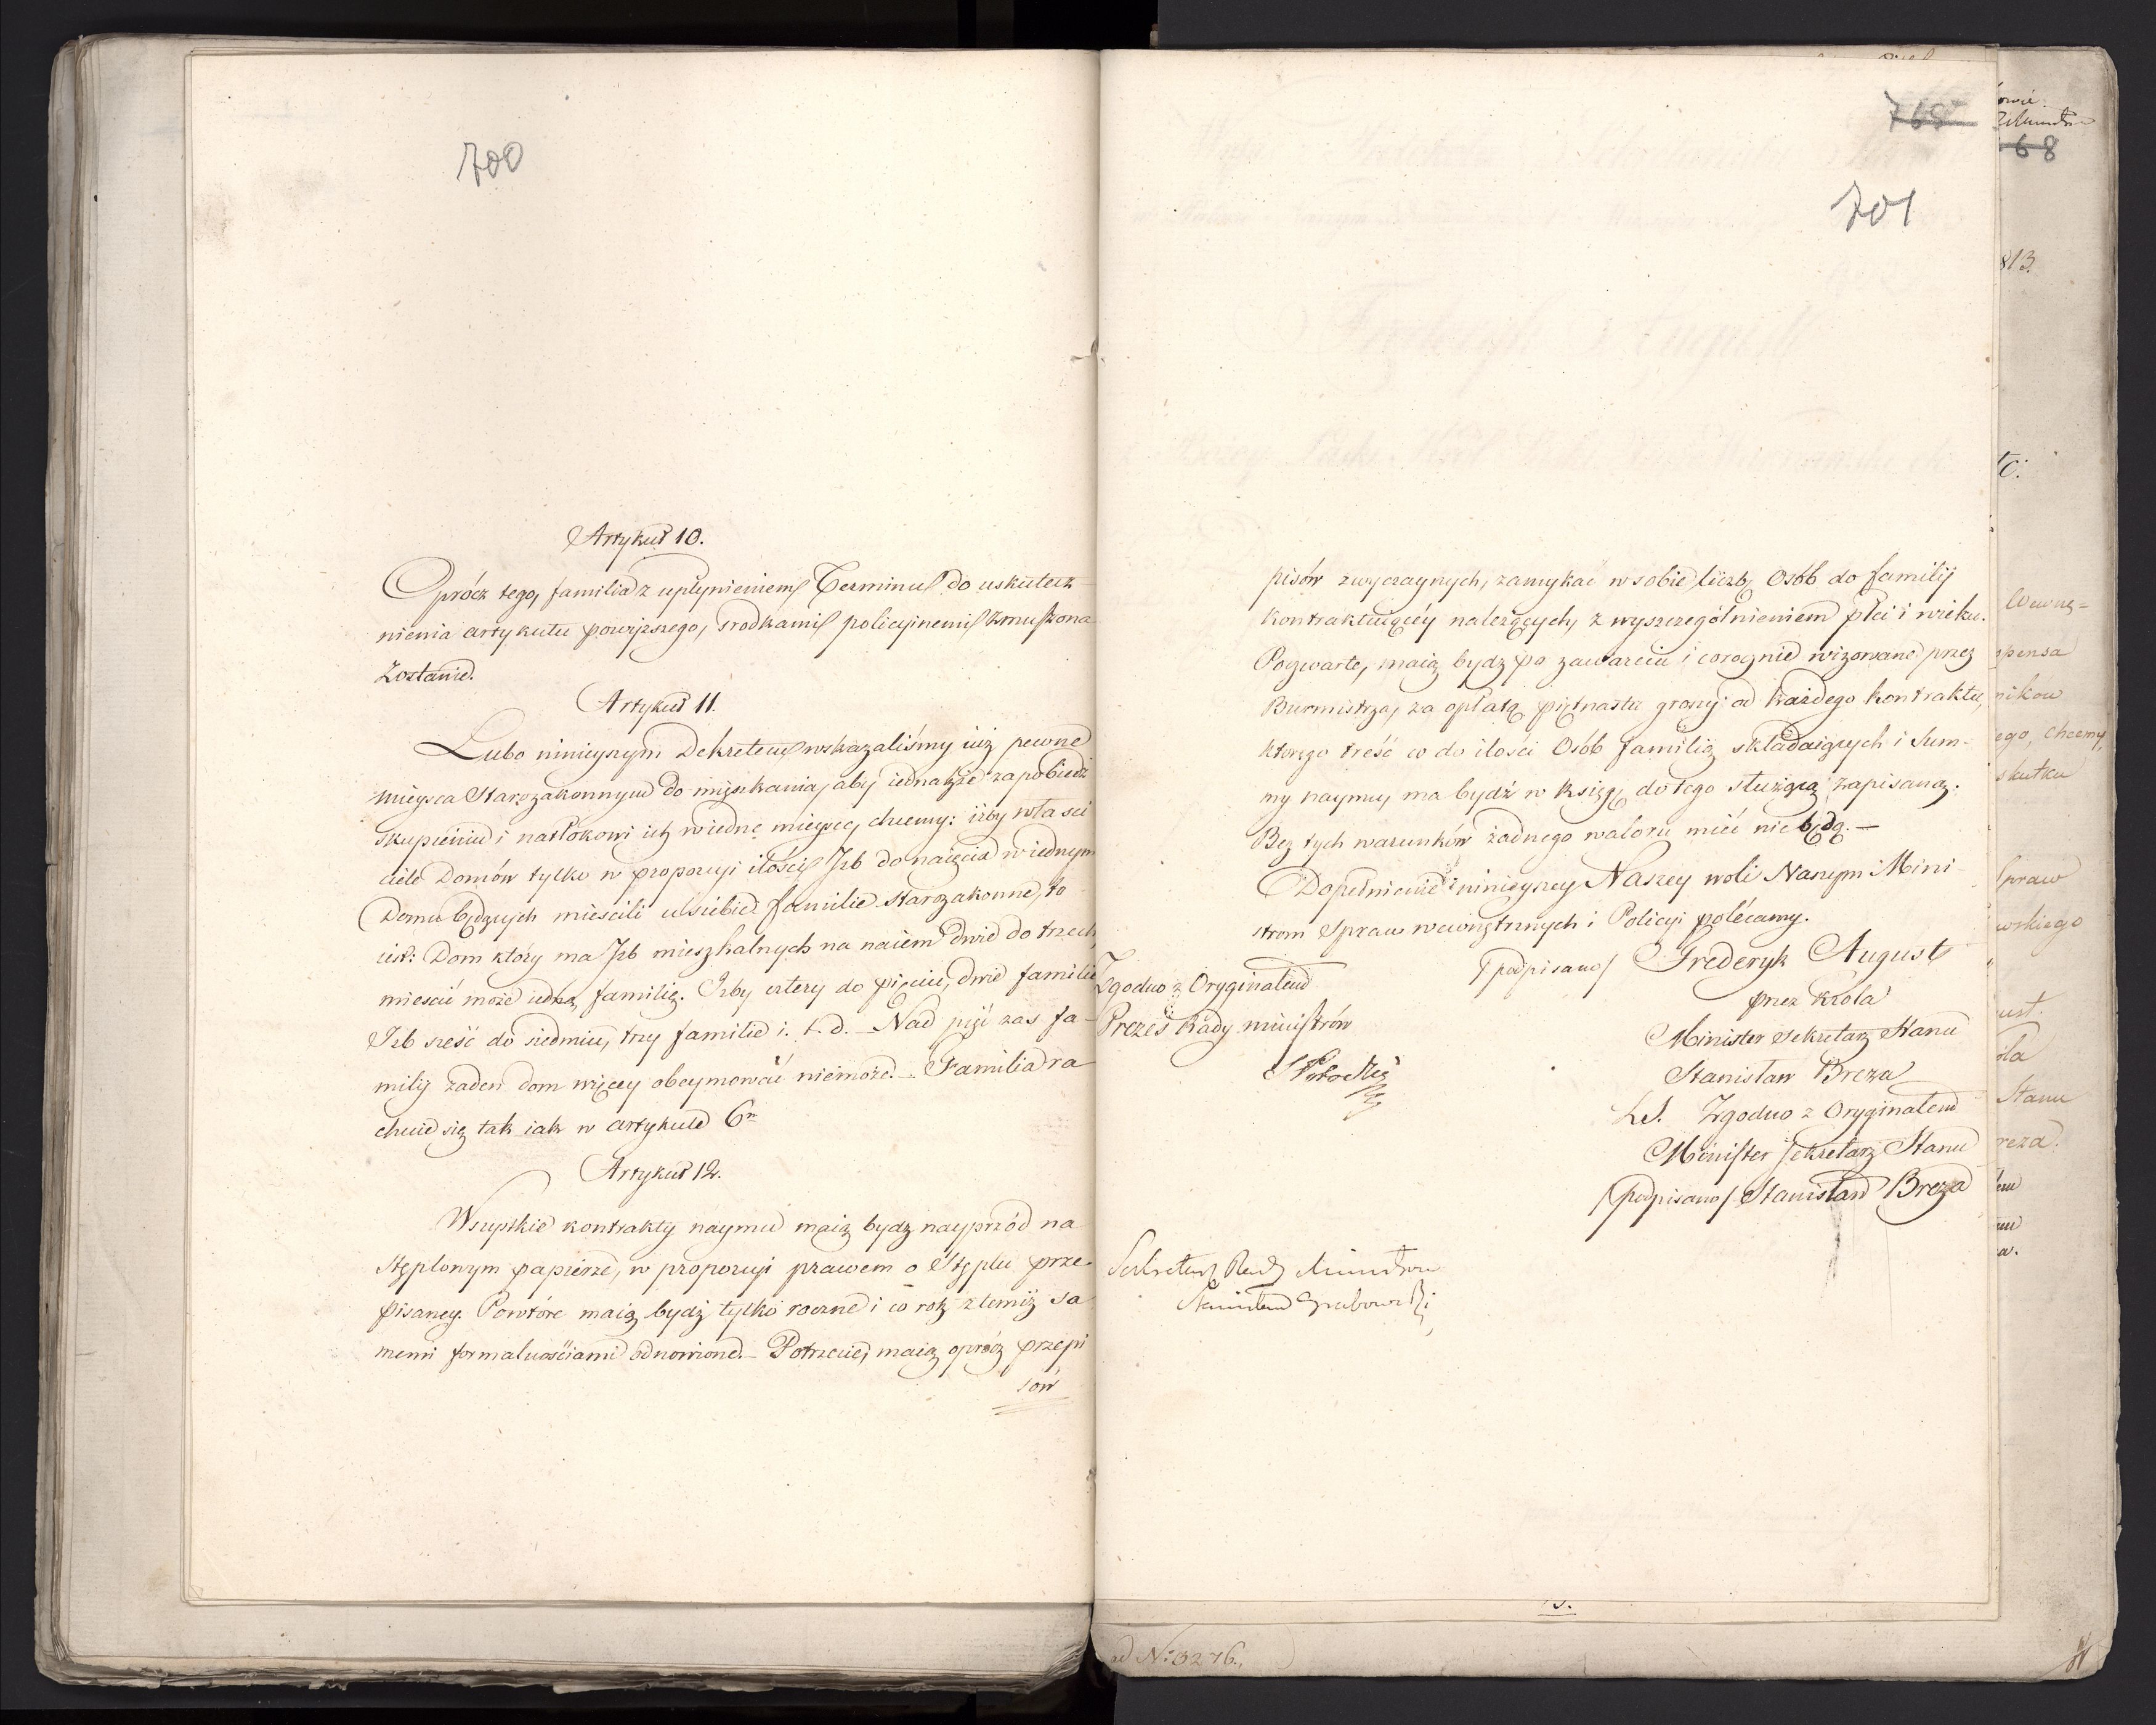 700
Artykuł 10.
Oprócz tego, familia z upłynieniem Terminu do uskutecz-
nienia artykułu powyższego, srodkami policyinemi zmuszona
zostanie.
Artykuł 11.
Lubo ninieyszym Dekretem wskazaliśmy iuż pewne
mieysca Starozakonnym do mięszkania, aby iednakże zapobiedz
skupieniu i natłokowi ich w iedne mieysce, chcemy: iżby właści
ciele Domów tylko w proporcyi ilości Izb do naięcia w iednym
Domu będących mieścili u siebie familie starozakonne, to
iest: Dom który ma Izb mieszkalnych na naiem dwie do trzech,
miescić może iedną familię. Izby cztery do pięciu, dwie familie
Izb sześć do siedmiu, trzy familie i. t. d. – Nad pięć zas fa-
milij żaden dom więcey obeymować niemoże. – Familia ra
chuie się tak iak w artykule 6m
Artykuł 12.
Wszystkie kontrakty naymu maią bydz nayprzód na
stęplowym papierze, w proporcyi prawem o Stęplu prze-
pisaney. Powtóre maią bydź tylko roczne i co rok z temiż sa
memi formalnościami odnowione. – Potrzecie, maią oprócz przepi
sów
768
701
pisów zwyczaynych, zamykać w sobie liczbę Osób do familij
kontraktuiącéy należących, z wyszczególnieniem płci i wieku.
Poczwarte, maią bydz po zawarciu i corocznie wizowane przez
Burmistrza, za opłatą piętnastu groszy od każdego kontraktu,
ktorego treść co do ilości Osób familią składaiących i Sum-
my naymu, ma bydź w księgę do tego służącą zapisaną.
Bez tych warunków żadnego waloru mieć nie będą. –
Dopełnienie ninieyszey Naszey woli Naszym Mini-
strom Spraw wewnętrznych i Policyi polécamy.
/podpisano/ Frederyk August
przez Króla
Minister Sekretarz Stanu
Stanisław Breza
L.S. Zgodno z Oryginałem
Minister Sekretarz Stanu
/podpisano/ Stanisław Breza
Zgodno z Oryginałem
Prezes Rady ministrów
Sekretarz Rady Ministrów
Stanisław Grabowski
68
813.
Wewnę-
spensa
ników
ego, chcemy,
skutku
Spraw
wskiego
ust.
óla
Stanu
reza.
ad No: 3276.